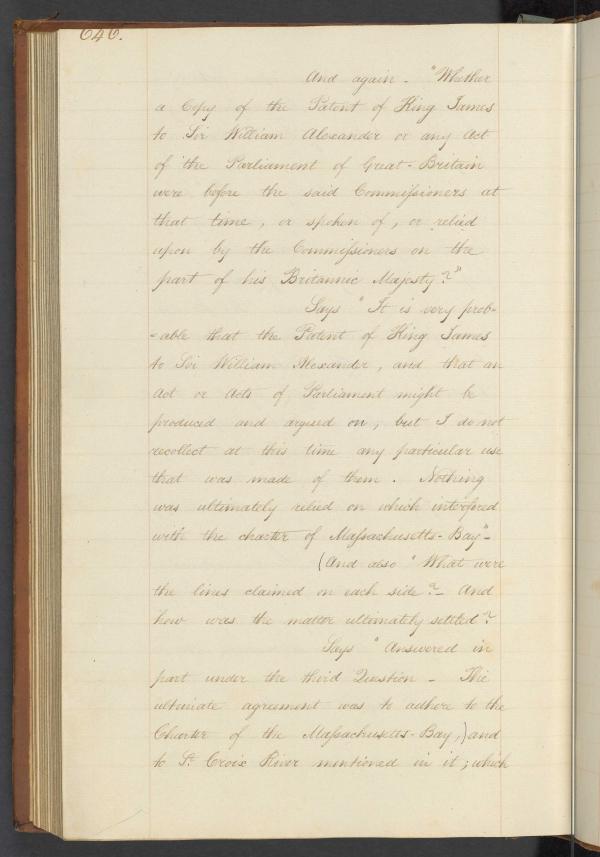 646.
And again - "Whether
a Copy of the Patent of King James
to Sir William Alexander or any Act
of the Parliament of Great-Britain
were before the said Commissioners at
that time, or spoken of, or relied
upon by the Commissioners on the
part of his Britannic Majesty?"
Says "It is very prob-
=able that the Patent of King James
to Sir William Alexander, and that an
Act or Acts of Parliament might be
produced and argued on, but I do not
recollect at this time any particular use
that was made of them. Nothing
was ultimately relied on which interfered
with the charter of Massachusetts-Bay"-
(And also "What were
the lines claimed on each side?- And
how was the matter ultimately settled?
Says "Answered in
part under the third Question - The
ultimate agreement was to adhere to the
Charter of the Massachusetts-Bay,) and
to St. Croix River mentioned in it; which